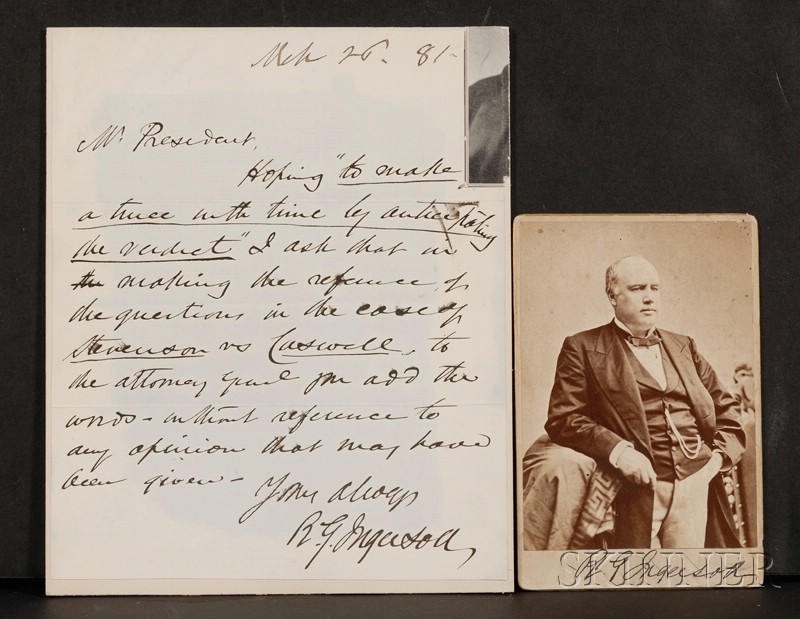 Mch 26. 81-
Mr. President,
Hoping "to make
a truce with time by anticipating
the verdict" I ask that in
making the reference of
the questions in the case of
Stevenson vs Caswell, to
the attorney you add the
words - without reference to
any opinion that may have
been given -
Yours always
R. G. Ingersoll
R G Ingersoll
SKINNER